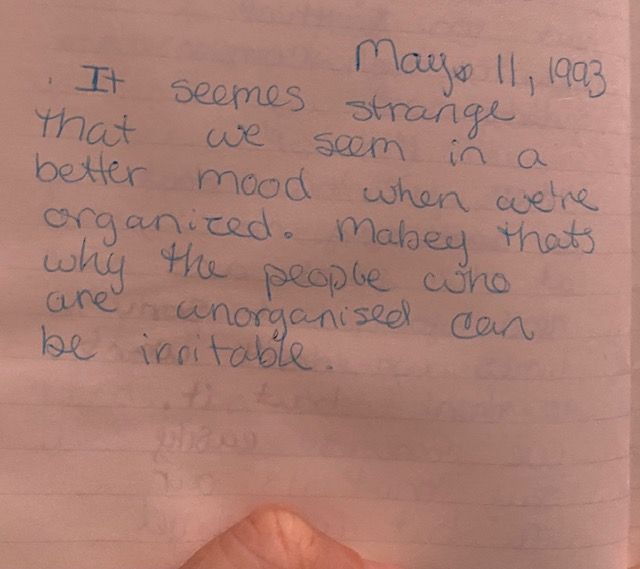 May 11, 1993
It seemes strange
that we seem in a
better mood when we're
organized. Mabey thats
why the people who
are unorganised can
be irritable.